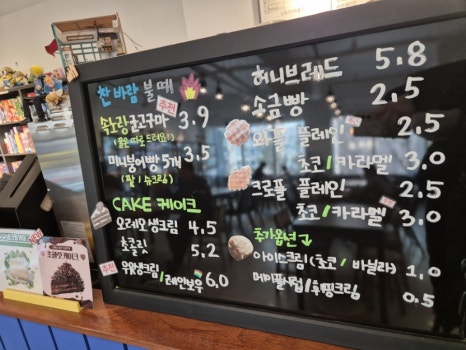 찬 바람 불 때
추천
속노랑 군고구마 3.9
(물은 따로 드려요!)
미니붕어빵 5개 3.5
(팥 / 슈크림)
CAKE 케이크
오레오생크림 4.5
초콜릿 5.2
우유생크림 / 레인보우 6.0
허니브레드 5.8
소금빵 2.5
와플 플레인 2.5
초코 / 카라멜 3.0
크로플 플레인 2.5
초코 / 카라멜 3.0
추가옵션
아이스크림 (초코 / 바닐라) 1.0
메이플시럽 / 휘핑크림 0.5